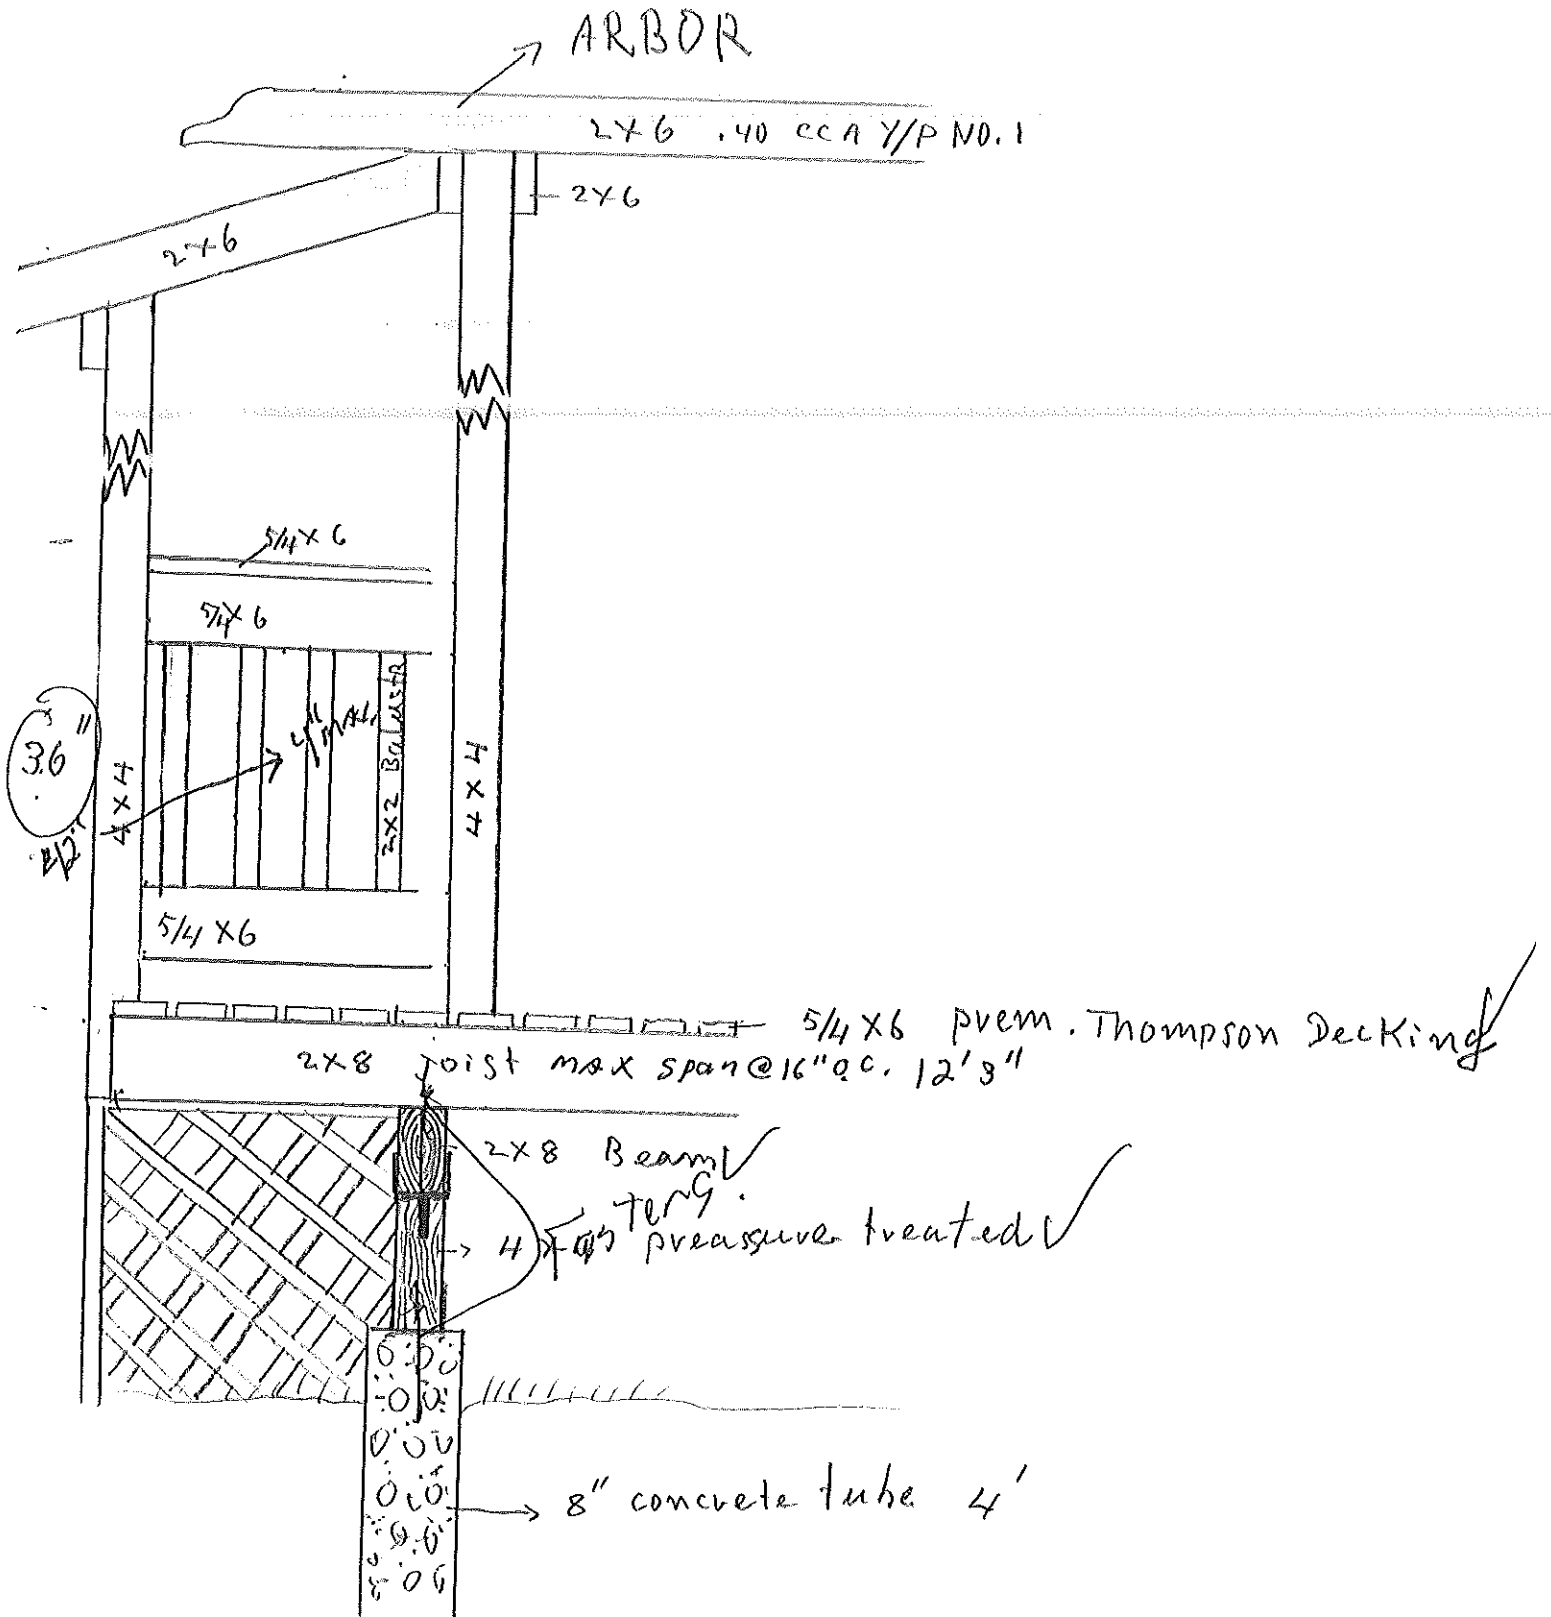 ARBOR
2X6 .40 CCA Y/P NO.1
2X6
2X6
5/4X6
5/4X6
36"
4X4
4" MAX.
2X2 Balustr
4X4
5/4X6
5/4X6 prem. Thompson Decking
2X8 joist max span@16"oc. 12'3"
2X8 Beam
4X4 preassure treated
8" concrete tube 4'